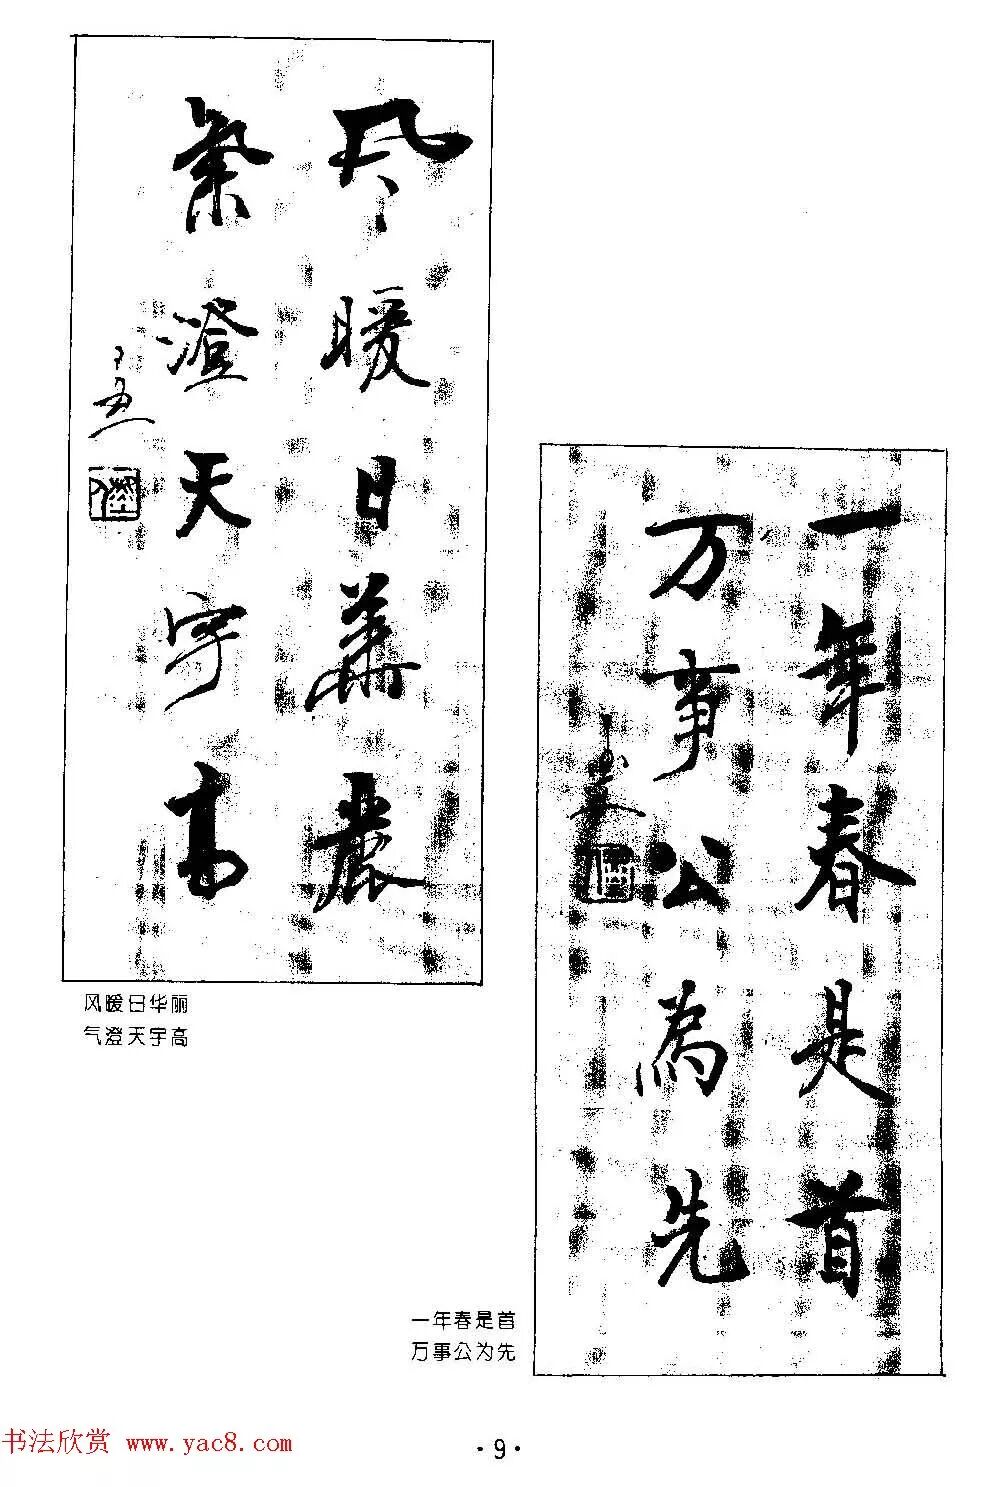 风暖日華麗
氣澄天宇高
风暖日华丽
气澄天宇高
一年春是首
万事公為先
一年春是首
万事公为先
书法欣赏 www.yac8.com
·9·